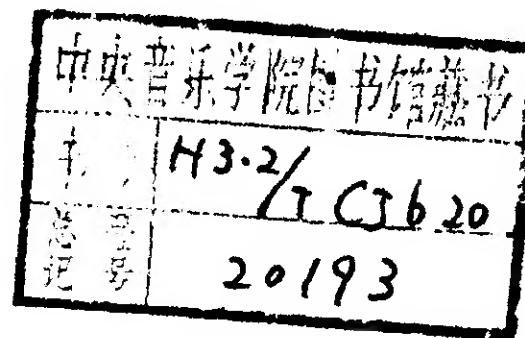 中央音乐学院图书馆藏书
书号 H3.2/T CJ620
总记号 20193